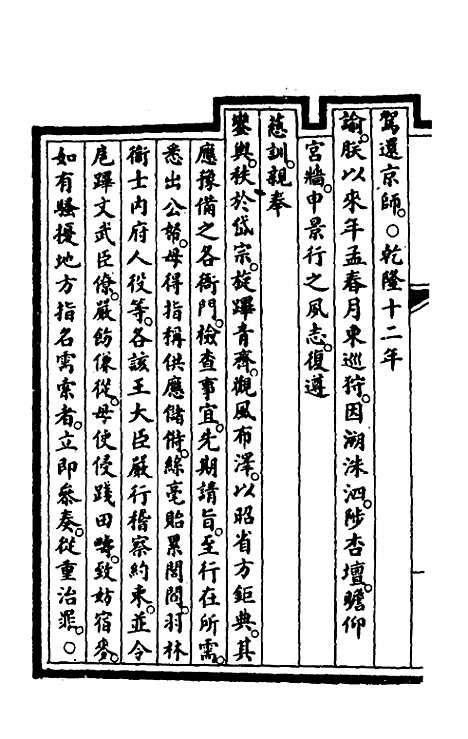 駕還京師。○乾隆十二年
諭。朕以來年孟春月東巡狩。因溯洙泗。陟杏壇。瞻仰
宮牆。申景行之夙志。復遵
慈訓。親奉
鑾輿。秩於岱宗。旋蹕青齊。觀風布澤。以昭省方鉅典。其
應豫備之各衙門。檢查事宜。先期請旨。至行在所需。
悉出公帑。毋得指稱供應儲偫。絲毫貽累閭閻。羽林
衛士內府人役等。各該王大臣嚴行稽察約束。並令
扈蹕文武臣僚。嚴飭傔從。毋使侵踐田疇。致妨宿麥。
如有騷擾地方指名需索者。立即參奏。從重治罪。○